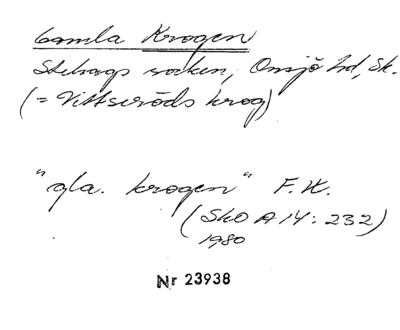 Gamla Krogen
Stehags socken, Onsjö hd, Sk.
(= Vittseröds krog)
"gla. krogen" F.K.
(SkO A 14: 232)
1980
Nr 23938